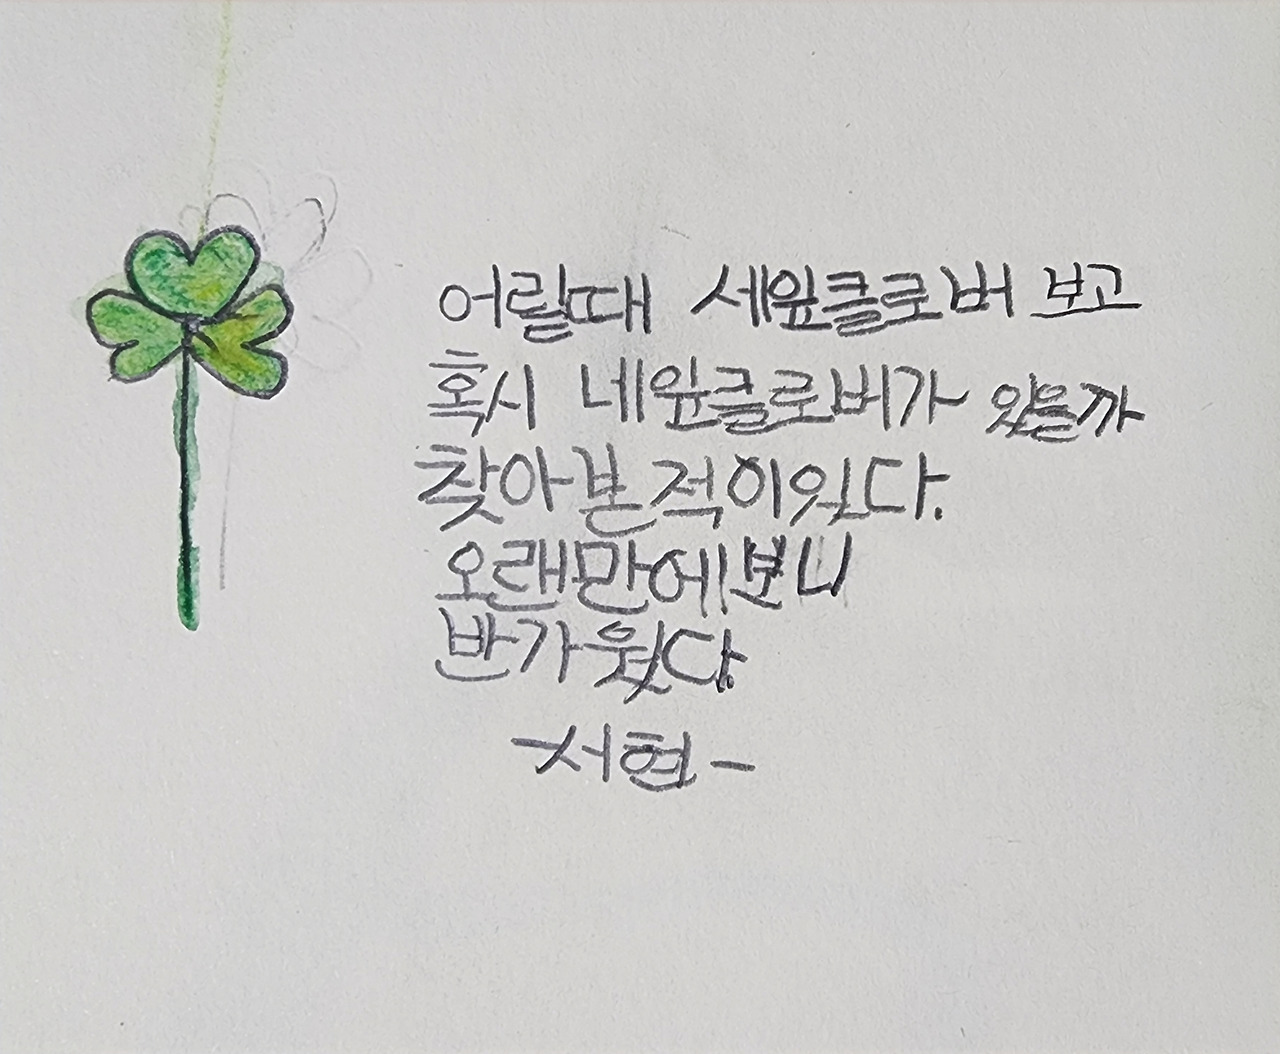 어릴때 세잎클로버 보고
혹시 네잎클로버가 있을까
찾아본적이있다.
오랜만에보니
반가웠다.
-서현-